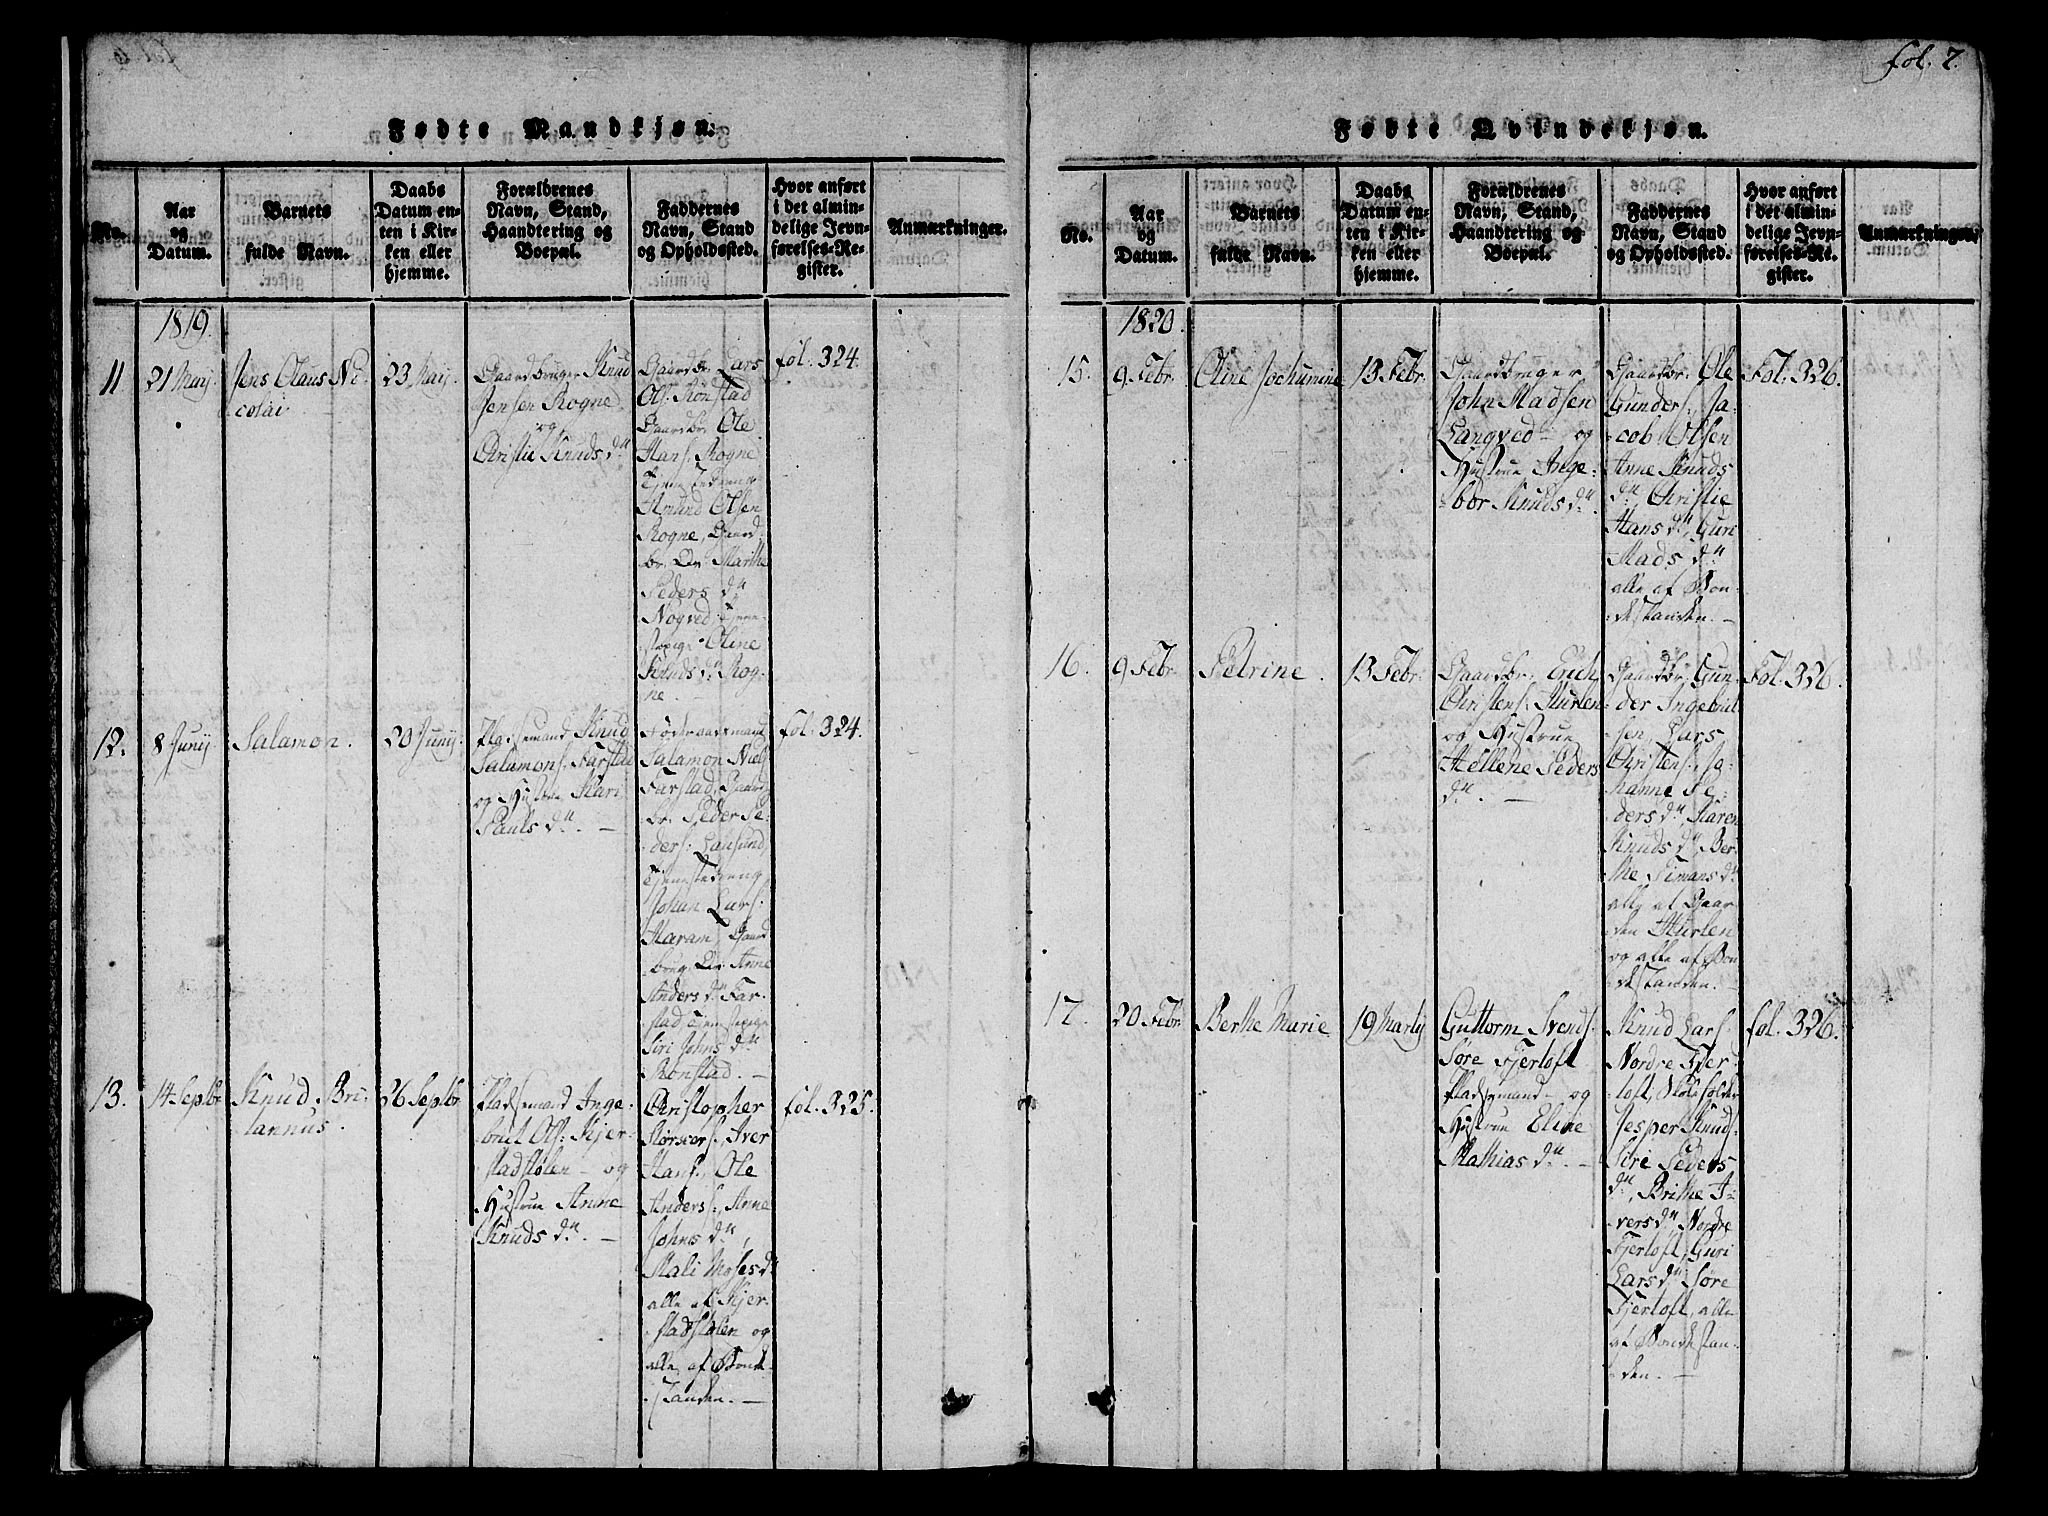 fol. 7.
Fødte Mandkjøn.
No.
Aar og Datum.
Barnets fulde Navn.
Daabs Datum enten i Kirken eller hjemme.
Forældrenes Navn, Stand, Haandtering og Boepæl.
Faddernes Navn, Stand og Opholdssted.
Hvor anført i det almindelige Jevnførelses-Register.
Anmærkninger.
1819.
11
21 Maij
Jens Olaus Ni-
colai
23 Maij.
Gaardbruger Knud
Jensen Rogne
og
Christie Knuds dr.
Gaardbr. Lars
Ols. Rønstad
Gaardbr. Ole
Hans. Rogne
Tjenestedreng
Amund Olsen
Rogne, Gaard-
br. Marithe
Peders dr.
Nogved, Tjene-
stepige Oline
Knuds dr. Rog-
ne.
fol. 324.
12.
8 Junij
Salamon.
20 Junij.
Pladsemand Knud
Salamons. Farstad
og Hustrue Kari
Pauls dr. —
Føderaadsmand
Salamon Niels.
Farstad, Gaard-
br. Peder Pe-
ders. Lausund,
Tjenestedreng
Johan Lars.
Haram, Gaard-
brug. Anne
Anders dr. Far-
stad Tjenestepige
Siri Johns dr.
Rønstad. —
fol. 324.
13.
14 Septbr
Knud Bri-
tannus.
26 Septbr.
Pladsemand Inge-
brit Ols. Kjer-
stadstølen - og
Hustrue Anne
Knuds dr. —
Christopher
Iver
Hans., Ole
Anders., Anne
Johns dr.,
Mali Moses dr.
alle af Kjer-
stadstølen og
alle af Bonde-
standen. —
fol. 325.
Fødte Qvindekjøn.
No.
Aar og Datum.
Barnets fulde Navn.
Daabs Datum enten i Kirken eller hjemme.
Forældrenes Navn, Stand, Haandtering og Boepæl.
Faddernes Navn, Stand og Opholdssted.
Hvor anført i det almindelige Jevnførelses-Register.
Anmærkninger.
1820.
15.
9 Febr.
Oline Jochumine
13 Febr.
Gaardbruger
John Madsen
Langved - og
Hustrue Inge-
bor Knuds dr.
Gaardbr. Ole
Gunders., Ja-
cob Olsen
Anne Knuds
dr. Christie
Hans dr., Guri
Mads dr.
alle af Bon-
destanden. —
Fol. 326.
16.
9 Febr.
Petrine.
13 Febr.
Gaardbr. Erich
Christens. Hurlen
og Hustrue
Hellene Peders
dr. —
Gaardbr. Gun-
der Ingebrit-
sen, Lars
Christens., Jo-
hanne Pe-
ders dr., Karen
Knuds dr., Ber-
the Simans dr.
alle af Gaar-
den Hurlen
og alle af Bon-
destanden. —
Fol. 326.
17.
20 Febr.
Berthe Marie
19 Martij
Guttorm Svends.
Søre Fjertoft
Pladsemand - og
Hustrue Eline
Mathias dr. —
Knud Lars.
Nordre Fjer-
toft, Skoleholder
Jesper Knuds.
Siri Peders
dr., Brithe I-
vers dr. Nordre
Fjertoft, Guri
Lars dr. Søre
Fjertoft, alle
af Bondestan-
den. —
fol. 326.